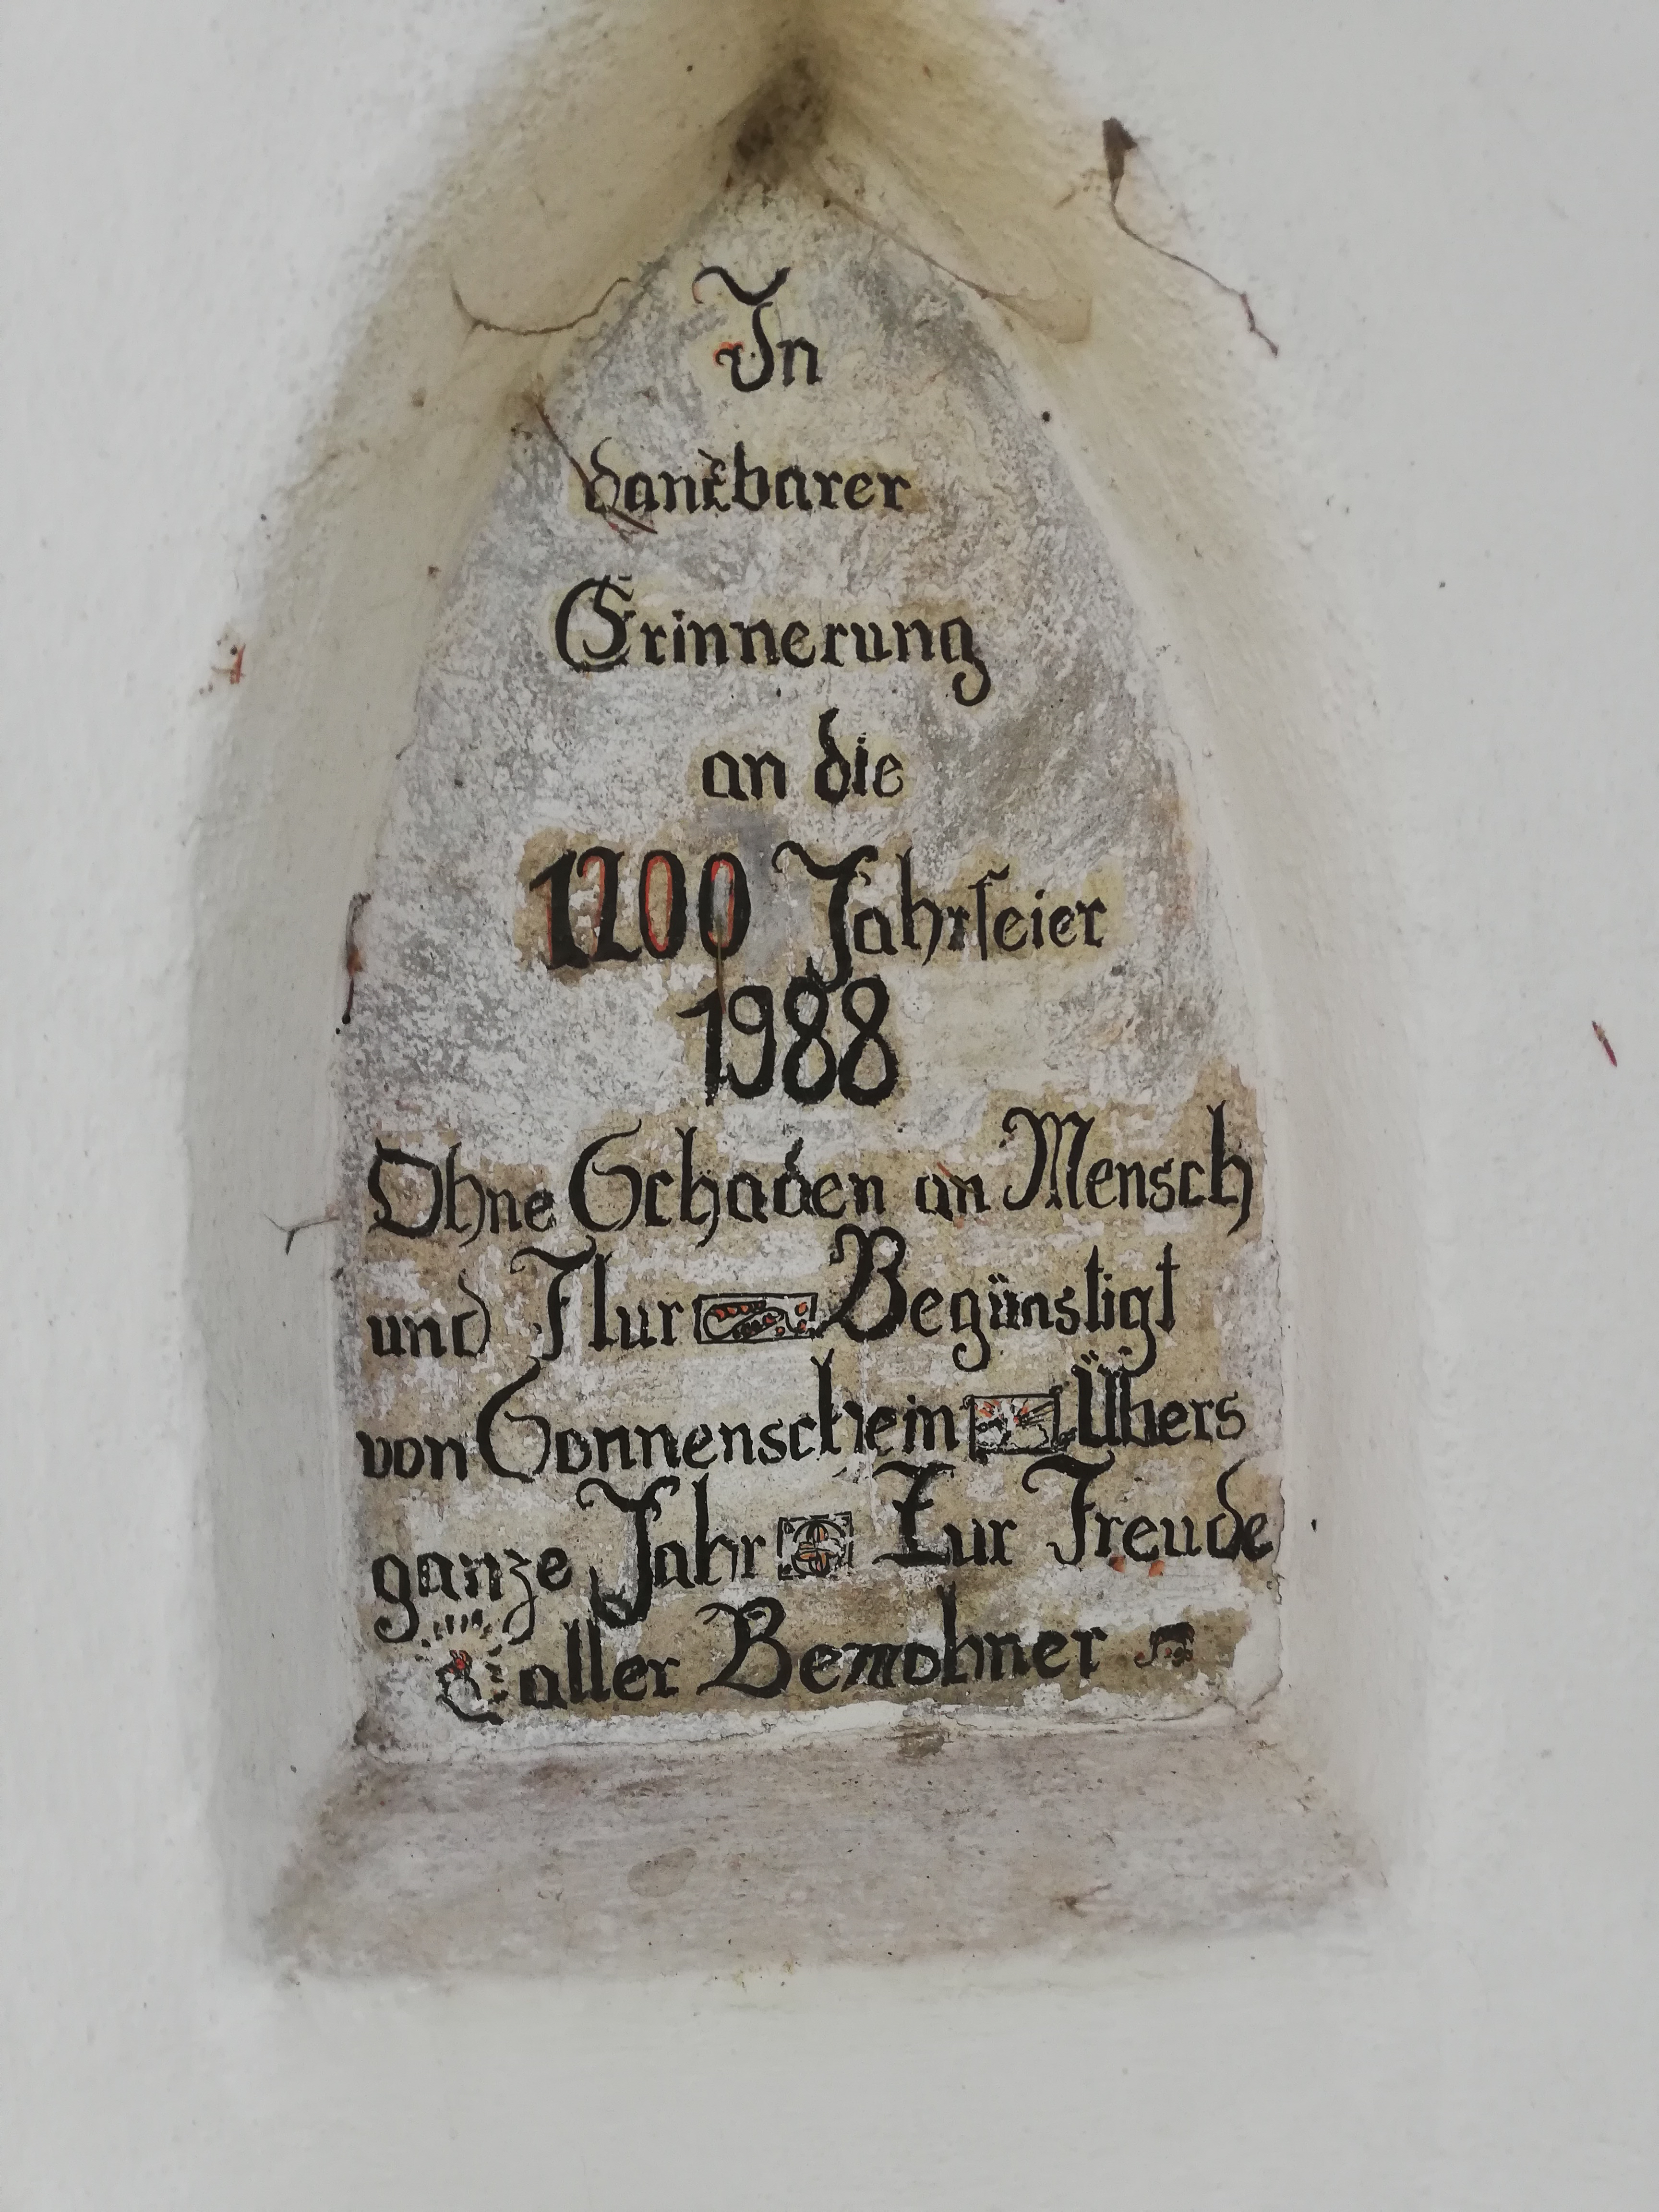 In
dankbarer
Erinnerung
an die
1200 Jahrfeier
1988
Ohne Schaden an Mensch
und Flur Begünstigt
von Sonnenschein Übers
ganze Jahr Zur Freude
aller Bewohner